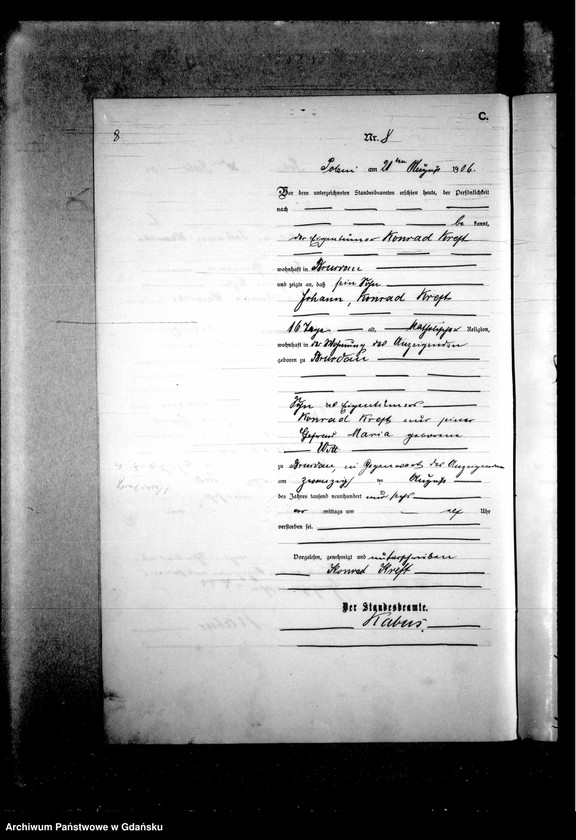 C.
8
Nr. 8
am 21ten August 1906.
Vor dem unterzeichneten Standesbeamten erschien heute, der Persönlichkeit
nach
be kannt,
der Eigentümer Konrad Kreft
wohnhaft in
und zeigte an, daß sein Sohn
Johann, Konrad Kreft
16 Tage alt, katholischer Religion,
wohnhaft in der Wohnung des Anzeigenden
geboren zu
Sohn des Eigentümers
Konrad Kreft und seiner
Ehefrau Maria geborene
Witt
zu in Gegenwart des Anzeigenden
am zwanzig ten August
des Jahres tausend neunhundert und sechs
vor mittags um elf Uhr
verstorben sei.
Vorgelesen, genehmigt und unterschrieben
Konrad Kreft
Der Standesbeamte.
Kabus.
Archiwum Państwowe w Gdańsku